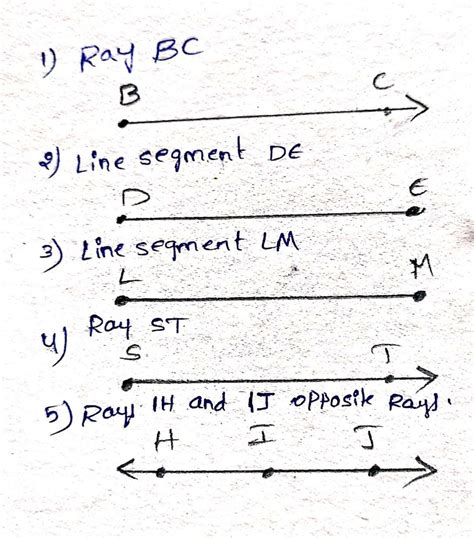 1) Ray BC
B C
2) Line segment DE
D E
3) Line segment LM
L M
4) Ray ST
S T
5) Rays IH and IJ opposite Rays.
H I J